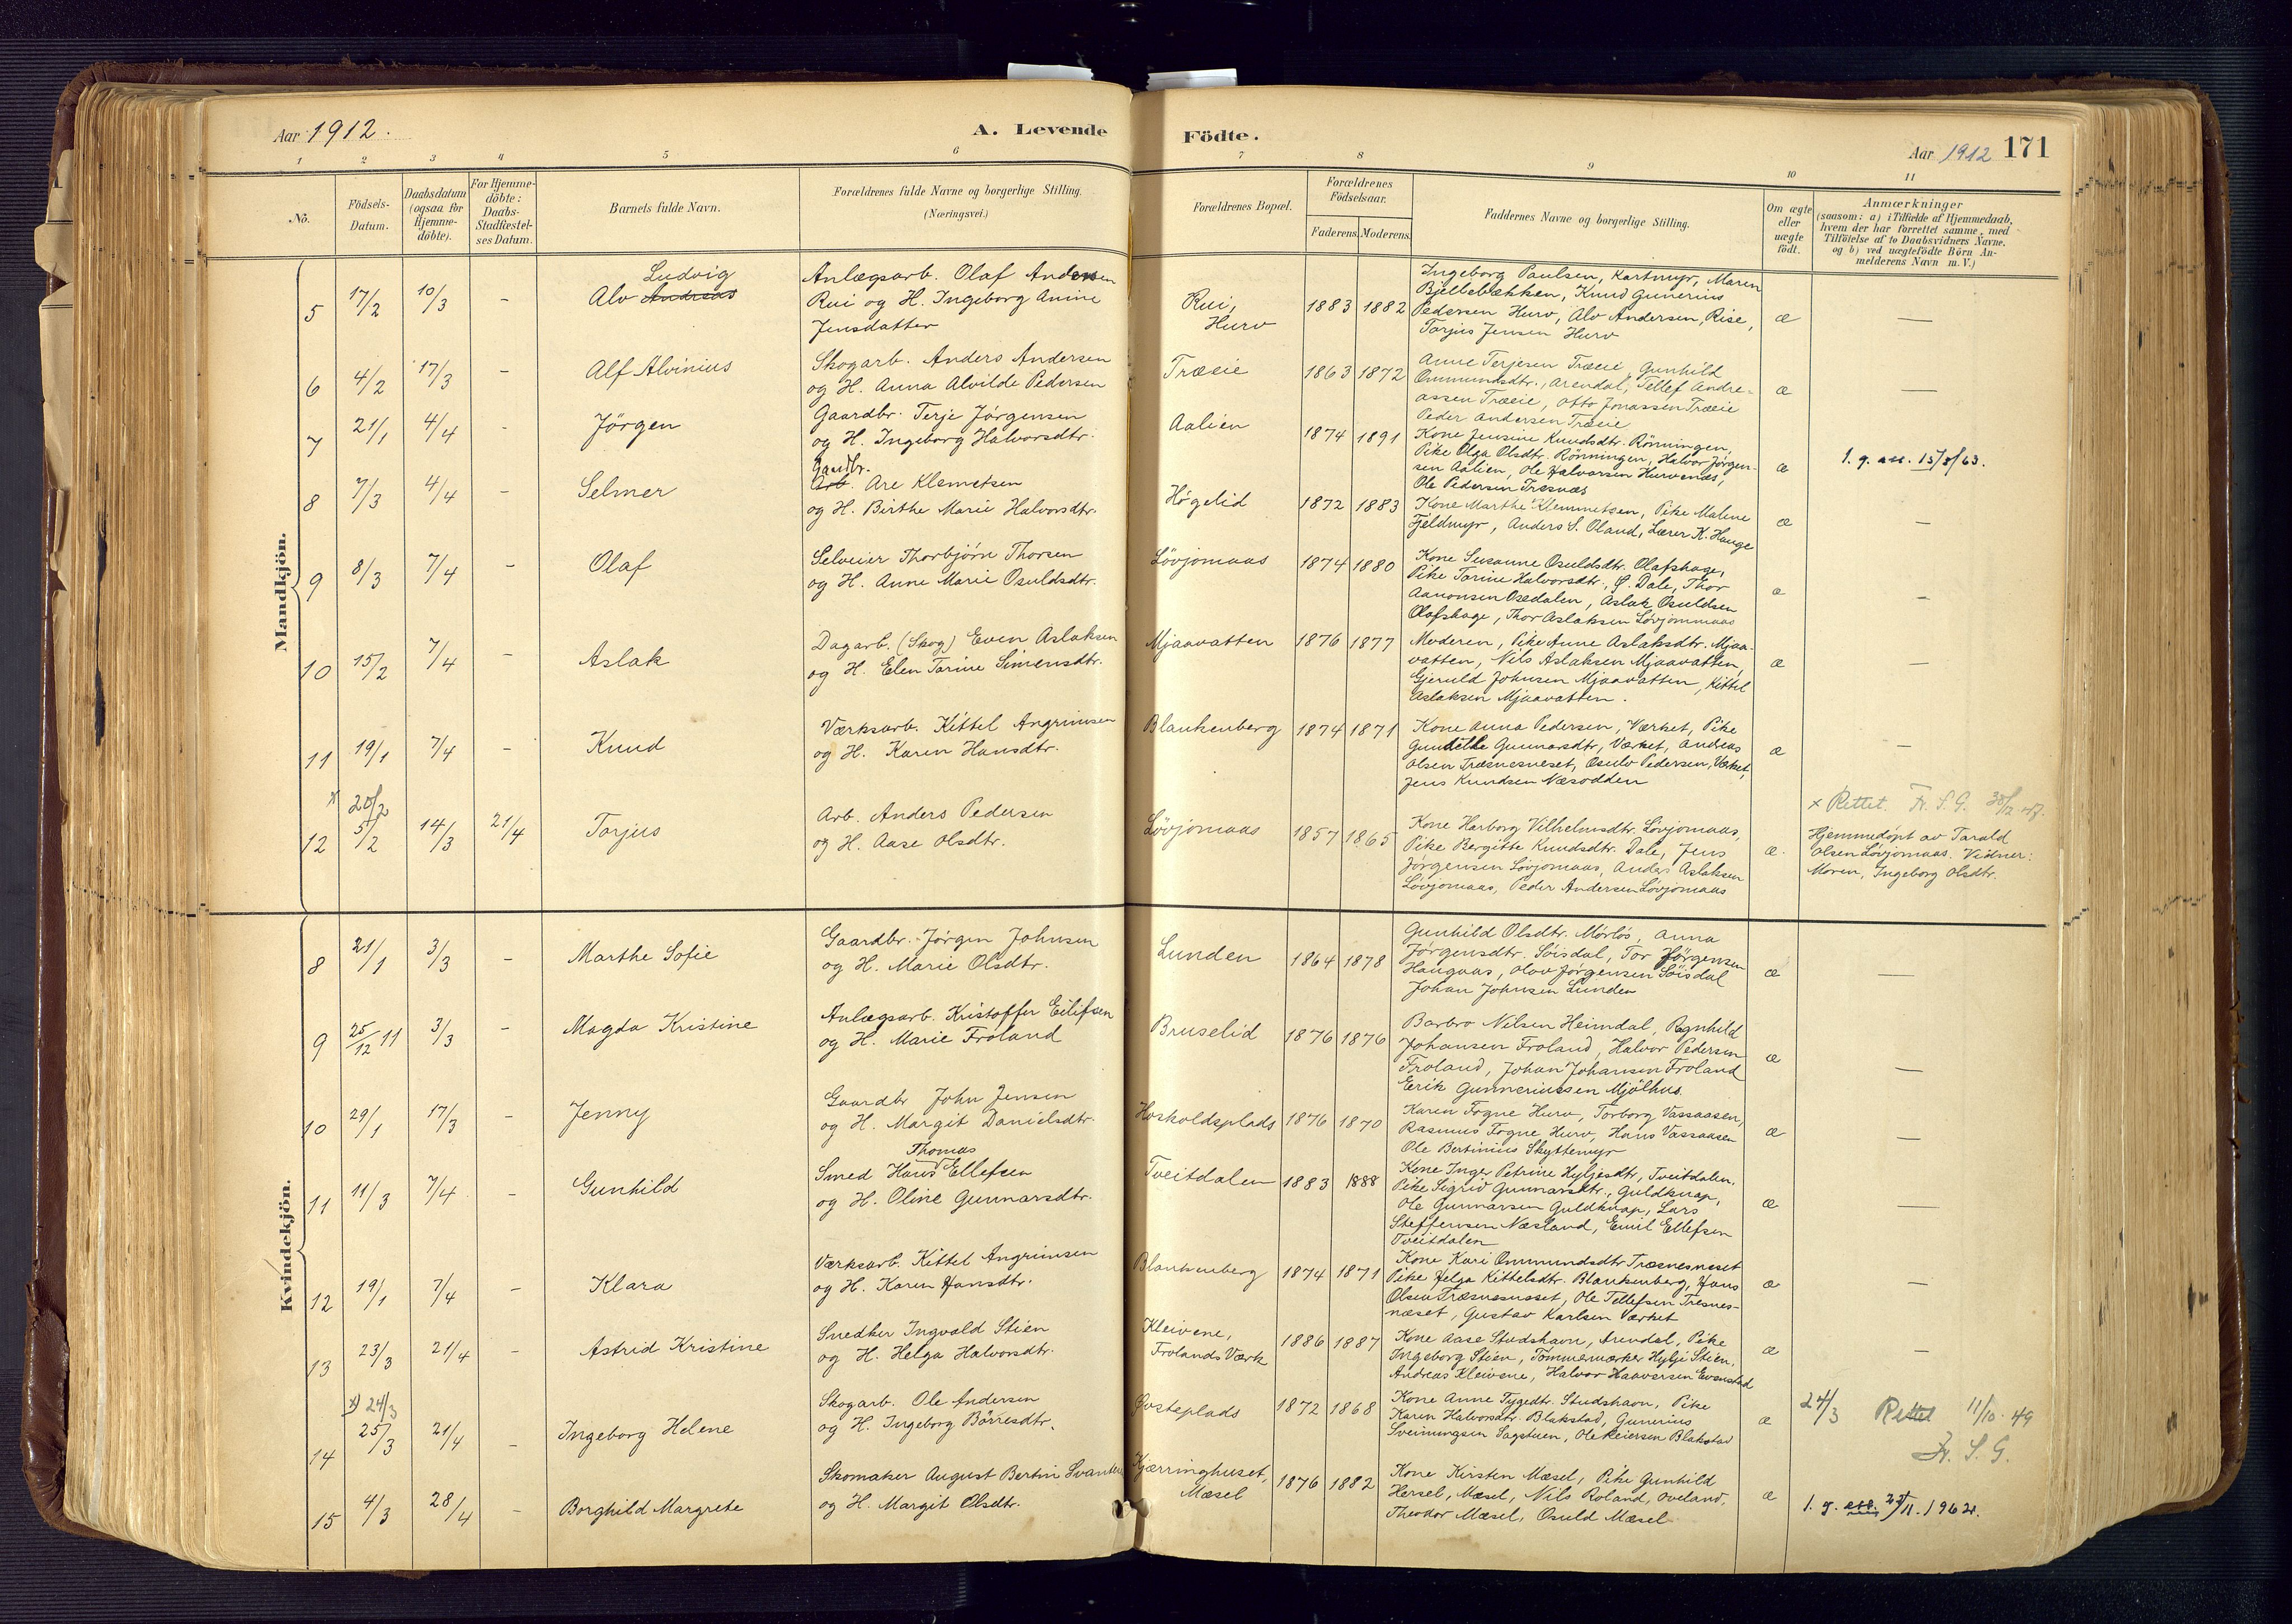 Aar 1912. A. Levende Fødte. Aar 1912 171
1 2 3 4 5 6 7 8 9 10 11
No. Födsels-Datum. Daabsdatum (ogsaa for Hjemme-döbte). For Hjemme-döbte: Daabs-Stadfæstel-ses Datum. Barnets fulde Navn. Forældrenes fulde Navne og borgerlige Stilling. (Næringsvei.) Forældrenes Bopæl. Forældrenes Födselsaar. Faderens. Moderens. Faddernes Navne og borgerlige Stilling. Om ægte eller uægte födt. Anmærkninger (saasom: a) i Tilfælde af Hjemmedaab, hvem der har forrettet samme, med Tilföielse af to Daabsvidners Navne, og b) ved uægtefödte Börn An-melderens Navn m. V.)
Mandkjön.
5 17/2 10/3 - Alv Andreas Ludvig
Anlægsarb. Olaf Andersen
Rui og H. Ingeborg Anine
Jensdatter
Rui,
Hurv
1883 1882
Ingeborg Paulsen, Kartmyr, Maren
Bjellebækken, Knud Gunerius
Pedersen Hurv, Alv Andersen, Rise,
Torjus Jensen Hurv
æ —
6 4/2 17/3 - Alf Alvinius
Skogarb. Anders Andersen
og H. Anna Alvilde Pedersen
Træeie 1863 1872
Anne Terjesen Træeie, Gunhild
Ommundsdtr., Arendal, Tellef Andre-
assen Træeie, Otto Jonassen Træeie
Peder Andersen Træeie
æ —
7 21/1 4/4 - Jörgen
Gaardbr. Terje Jörgensen
og H. Ingeborg Halvorsdtr.
Aalien 1874 1891
Kone Jensine Knudsdtr. Rönningen,
Pike Olga Olsdtr. Rönningen, Halvor Jörgen-
sen Aalien, Ole Halvorsen Hurvenes,
Ole Pedersen Træsnæs
æ 1. g. att. 15/3/63.
8 7/3 4/4 - Selmer
Gaardbr.
Arb. Are Klemetsen
og H. Birthe Marie Halvorsdtr.
Högelid 1872 1883
Kone Marthe Klemmetsen, Pike Malene
Fjeldmyr, Anders S. Oland, Lærer K. Hauge
æ —
9 8/3 7/4 - Olaf
Selveier Thorbjörn Thorsen
og H. Anne Marie Osuldsdtr.
Lövjomaas 1874 1880
Kone Susanne Osuldsdtr. Olafshage,
Pike Torine Halvorsdtr., Ø. Dale, Thor
Aanonsen Osedalen, Aslak Osuldsen
Olafshage, Thor Aslaksen Lövjommaas
æ —
10 15/2 7/4 - Aslak
Dagarb. (Skog) Even Aslaksen
og H. Elen Torine Simensdtr.
Mjaavatten 1876 1877
Moderen, Pike Anne Aslaksdtr. Mjaa-
vatten, Nils Aslaksen Mjaavatten,
Gjeruld Johnsen Mjaavatten, Kittel
Aslaksen Mjaavatten.
æ —
11 19/1 7/4 - Knud
Værksarb. Kittel Angrimsen
og H. Karen Hansdtr.
Blankenberg 1874 1871
Kone Anna Pedersen, Værket, Pike
Gundelle Gunnarsdtr, Værket, Andreas
Olsen Træsnesneset, Osulv Pedersen, Værket,
Jens Knudsen Næsodden
æ —
12 x 20/2 5/2 14/3 21/4 Torjus
Arb. Anders Pedersen
og H. Aase Olsdtr.
Lövjomaas 1857 1865
Kone Harborg Vilhelmsdtr. Lövjomaas,
Pike Bergitte Knudsdtr. Dale, Jens
Jörgensen Lövjomaas, Anders Aslaksen
Lövjomaas, Peder Andersen Lövjomaas
æ.
x Rettet. Fr. S. G. 30/12 47.
Hjemmedöpt av Tarald
Olsen Lövjomaas. Vidner:
Moren, Ingeborg Olsdtr.
Kvindekjön.
8 21/1 3/3 - Marthe Sofie
Gaardbr. Jörgen Johnsen
og H. Marie Olsdtr.
Lunden 1864 1878
Gunhild Olsdtr. Mörlös, Anna
Jörgensdtr. Söisdal, Tor Jörgensen
Haugaas, Olav Jörgensen Söisdal
Johan Johnsen Lunden
æ —
9 25/12 11 3/3 - Magda Kristine
Anlægsarb. Kristoffer Eilifsen
og H. Marie Froland
Bruselid 1876 1876
Barbro Nilsen Heimdal, Ragnhild
Johansen Froland, Halvor Pedersen
Froland, Johan Johansen Froland
Eerik Gunneriussen Mjölhus.
æ —
10 29/1 17/3 - Jenny
Gaardbr John Jensen
og H. Margit Danielsdtr.
Hoskoldsplads 1876 1870
Karen Fogne Hurv, Torborg Vassaasen,
Rasmus Fogne Hurv, Hans Vassaasen
Ole Bertinius Skyttemyr
æ —
11 11/3 7/4 - Gunhild
Thomas
Smed Hans Ellefsen
og H. Oline Gunnarsdtr.
Tveitdalen 1883 1888
Kone Inger Petrine Hyljesdtr, Tveitdalen,
Pike Sigrid Gunnarsdtr., Guldknap,
Ole Gunnarsen Guldknap, Lars
Steffensen Næsland, Emil Ellefsen
Tveitdalen
æ —
12 19/1 7/4 - Klara
Værksarb. Kittel Angrimsen
og H. Karen Hansdtr.
Blankenberg 1874 1871
Kone Kari Ommundsdtr Træsnesneset
Pike Helga Kittelsdtr. Blankenberg, Hans
Olsen Træsnesneset, Ole Tellefsen Tresnes-
næset, Gustav Karlsen Værket
æ —
13 23/3 21/4 - Astrid Kristine
Snedker Ingvald Stien
og H. Helga Halvorsdtr.
Kleivene,
Frolands Værk
1886 1887
Kone Aase Studshavn, Arendal, Pike
Ingeborg Stien, Tömmermærker Hylje Stien,
Andreas Kleivene, Halvor Haaversen Evenstad
æ —
14 x) 24/3 25/3 21/4 - Ingeborg Helene
Skogarb. Ole Andersen
og H. Ingeborg Börresdtr.
Østeplads 1872 1868
Kone Anne Tygedtr. Studshavn, Pike
Karen Halvorsdtr. Blakstad, Gunerius
Sveinungsen Sagstuen, Ole Reiersen Blakstad
æ 24/3 Rettet 11/10 49
Fr. S. G.
15 4/3 28/4 - Borghild Margrete
Skomaker August Bertin
og H. Margit Olsdtr.
Kjærringhuset,
Mæsel
1876 1882
Kone Kirsten Mæsel, Pike Gunhild
Hersel, Mæsel, Nils Roland, Oveland,
Theodor Mæsel, Osuld Mæsel
æ 1. g. att. 23/11. 1962.